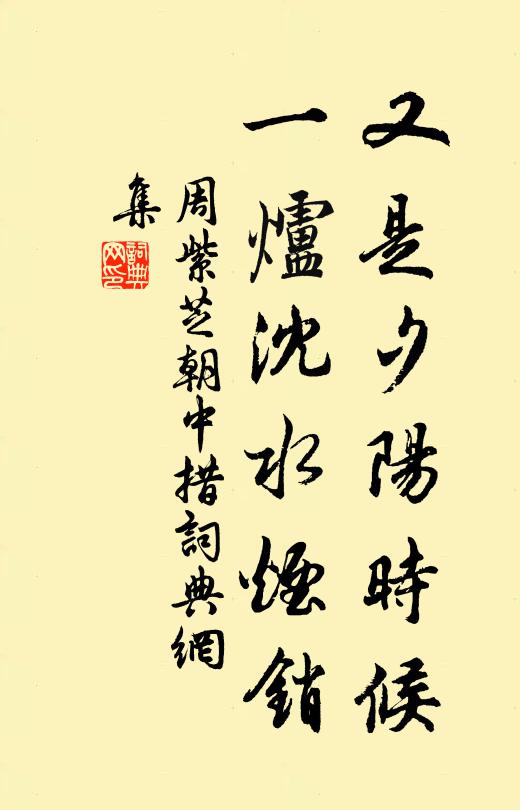 又是夕陽時候
一爐沈水煙銷
周紫芝朝中措詞典網
集
詞典網印